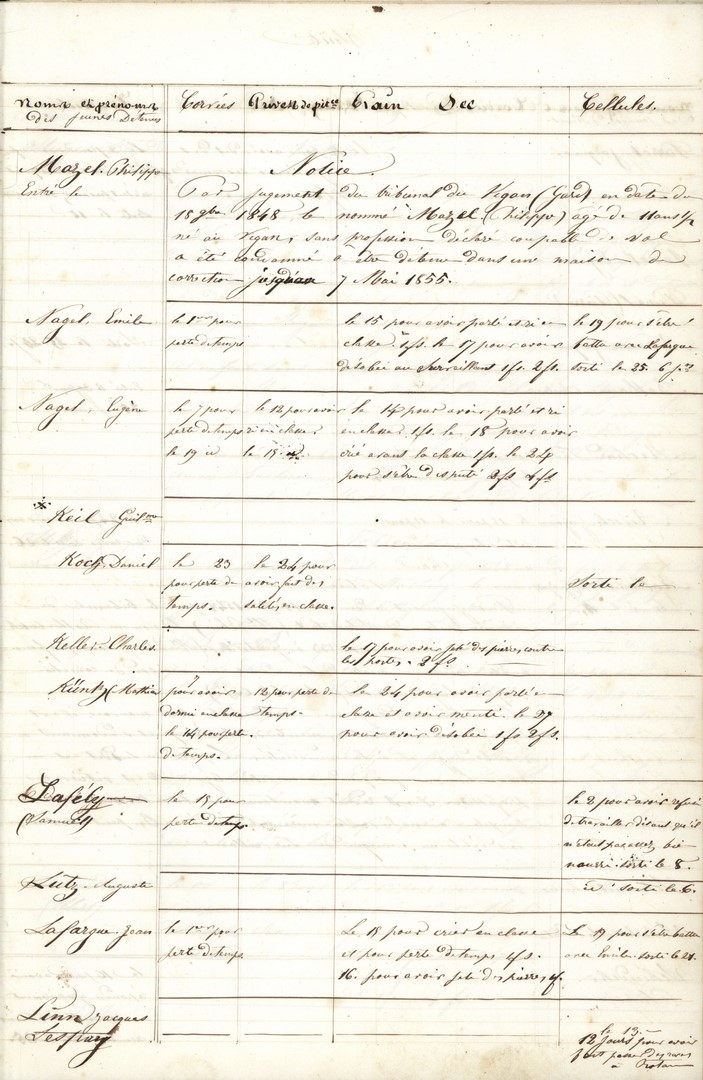 Noms et prénoms des jeunes Detenus
Corvées
Privat. de pitce
Pain Sec
Cellules.
Mazel. Philippe
Entré le
Notice.
Par jugement du tribunal du Vigan (Gard) en date du
18 9bre 1848 le nommé Mazel (Philippe) agé de 11 ans 1/2
né au Vigan, sans profession déclaré coupable de vol
a été condamné à être détenu dans une maison de
correction jusqu'au 7 Mai 1855.
Nagel, Emile
le 1er pour
perte de temps
le 15 pour avoir parlé et ri en
classe. 1fs. le 17 pour avoir
désobéi au surveillant 1fs. 2fs.
le 19 pour s'être
battu avec Lafargue
sorti le 25. 6 jrs
Nagel, Eugène
le 7 pour
perte de temps
le 19 id
le 12 pour avoir
ri en classe
le 15
le 14 pour avoir parlé et ri
en classe. 1fs. le 18 pour avoir
crié avant la classe 1fs. le 24
pour s'être disputé 2fs 4fs
Keil Guilme
Koch, Daniel
le 23
pour perte de
temps.
le 24 pour
avoir fait des
saletés en classe.
Sorti le
Keller Charles
le 17 pour avoir jeté des pierres contre
les portes. 2fs.
Küntz Mathieu
7
pour avoir
dormi en classe
le 14 pour perte
de temps.
12 pour perte de
temps.
le 24 pour avoir parlé en
classe et avoir menti. le 27
pour avoir désobéi 1fs 2fs.
Lafély
(Samuel)
le 15 pour
perte de temps
le 2 pour avoir refusé
de travailler disant qu'il
n'était pas assez bien
nourri. sorti le 8.
Lutz, Auguste
id sorti le 6.
Lafargue. Jean
le 1er pour
perte de temps
Le 18 pour crier en classe
et pour perte de temps 1fs.
16. pour avoir jeté des pierres, 1f.
Le 19 pour s'être battu
avec Emile. sorti le 21.
Linn Jacques
Lespary
le 13.
12 jours pour avoir
fait passer des
à